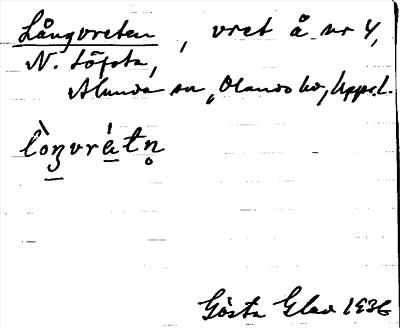 Långvreten, vret å nr 4,
N. Löfsta,
Alunda sn, Olands hd, Upps.l.
lòŋvrètn̥
Gösta Glad 1936